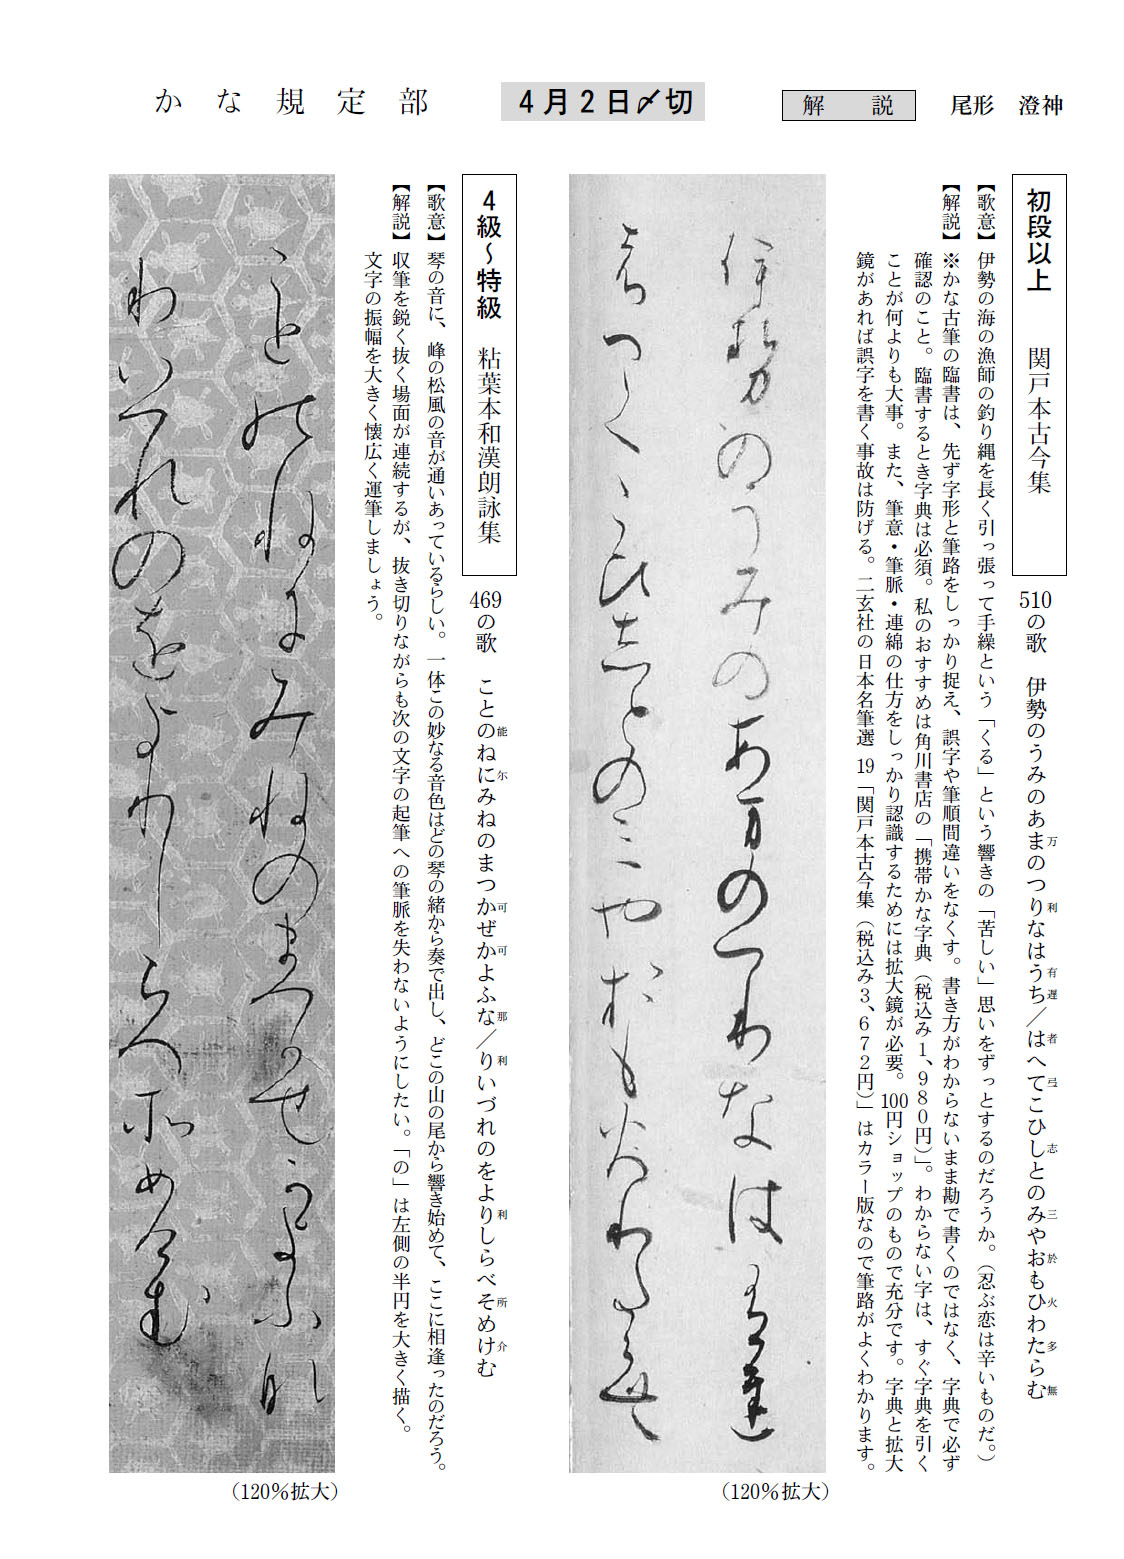 かな規定部
4月2日〆切
解説
尾形 澄神
初段以上 関戸本古今集
510の歌 伊勢のうみのあま万のつり利なはう有ち遅／は者へて弖こひし志とのみ三やお於もひ火わた多らむ無
【歌意】伊勢の海の漁師の釣り縄を長く引っ張って手繰という「くる」という響きの「苦しい」思いをずっとするのだろうか。（忍ぶ恋は辛いものだ。）
【解説】※かな古筆の臨書は、先ず字形と筆路をしっかり捉え、誤字や筆順間違いをなくす。書き方がわからないまま勘で書くのではなく、字典で必ず
確認のこと。臨書するとき字典は必須。私のおすすめは角川書店の「携帯かな字典（税込み1、980円）」。わからない字は、すぐ字典を引く
ことが何よりも大事。また、筆意・筆脈・連綿の仕方をしっかり認識するためには拡大鏡が必要。100円ショップのもので充分です。字典と拡大
鏡があれば誤字を書く事故は防げる。二玄社の日本名筆選 19「関戸本古今集（税込み3、672円）」はカラー版なので筆路がよくわかります。
伊勢のうみのあ万のつ利なは有遅
者へ弖こひ志との三や於も火わ多ら無
（120％拡大）
4級～特級 粘葉本和漢朗詠集
469の歌 ことの能ねに尓みねのまつか可ぜか可よふな那／り利いづれのをより利しらべそ所めけ介む
【歌意】琴の音に、峰の松風の音が通いあっているらしい。一体この妙なる音色はどの琴の緒から奏で出し、どこの山の尾から響き始めて、ここに相逢ったのだろう。
【解説】収筆を鋭く抜く場面が連続するが、抜き切りながらも次の文字の起筆への筆脈を失わないようにしたい。「の」は左側の半円を大きく描く。
文字の振幅を大きく懐広く運筆しましょう。
こと能ね尓みねのまつ可せ可よふ那
利いつれのをよ利しらへ所め介む
（120％拡大）